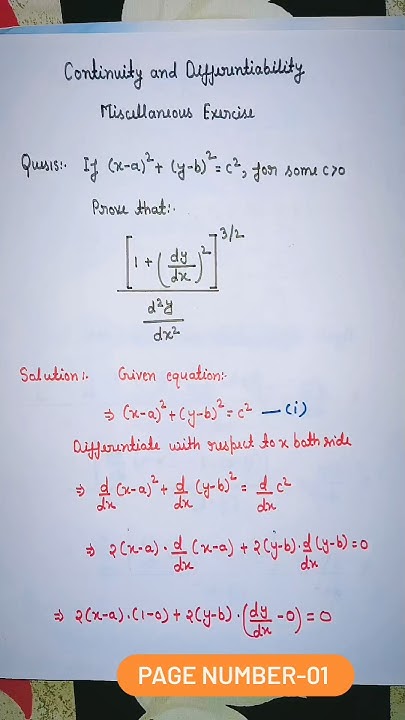 Continuity and Differentiability
Miscellaneous Exercise
Ques15:- If (x-a)² + (y-b)² = c², for some c>0
Prove that:-
[1 + (dy/dx)²]^3/2
d²y/dx²
Solution:- Given equation:-
⇒ (x-a)² + (y-b)² = c² —(i)
Differentiate with respect to x both side
⇒ d/dx (x-a)² + d/dx (y-b)² = d/dx c²
⇒ 2(x-a)· d/dx (x-a) + 2(y-b)· d/dx (y-b) = 0
⇒ 2(x-a)·(1-0) + 2(y-b)·(dy/dx - 0) = 0
PAGE NUMBER-01